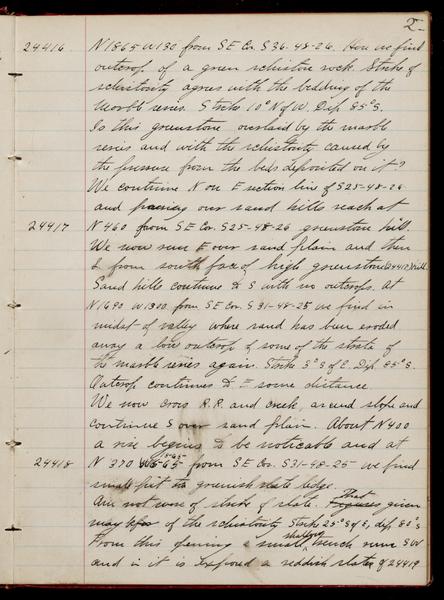 2-
24416 N 1865 W 130 from S E Cor. S 36-48-26. Here we find
outcrop of a green schistose rock. Strike of
schistosity agrees with the bedding of the
marble series. Strike 10° N of W. Dip 85° S.
Is this greenstone overlaid by the marble
series and with the schistosity caused by
the pressure from the beds deposited on it?
We continue N on E section line of S 25-48-26
and passing over sand hills reach at
24417 N 460 from S E Cor. S 25-48-26 greenstone hill.
We now run E over sand plain and then
S from south face of high greenstone (24417) hill.
Sand hills continue to S with no outcrops. At
N 1690 W 1300 from S E Cor. S 31-48-25 we find in
midst of valley where sand has been eroded
away a low outcrop of some of the strata of
the marble series again. Strike 5° S of E. Dip 85° S.
Outcrop continues to E some distance.
We now cross R.R. and creek, around slope and
continue S over sand plain. About N 400
a rise begins to be noticeable and at
24418 N 370 W 1565 from S E Cor. S 31-48-25 we find
small pit in greenish slate ledge.
Am not sure of strike of slate. That given
may be of the schistosity Strike 25° S of E, dip 80° S
From this opening a small shallow trench runs S W
and in it is exposed a reddish slate of 24419